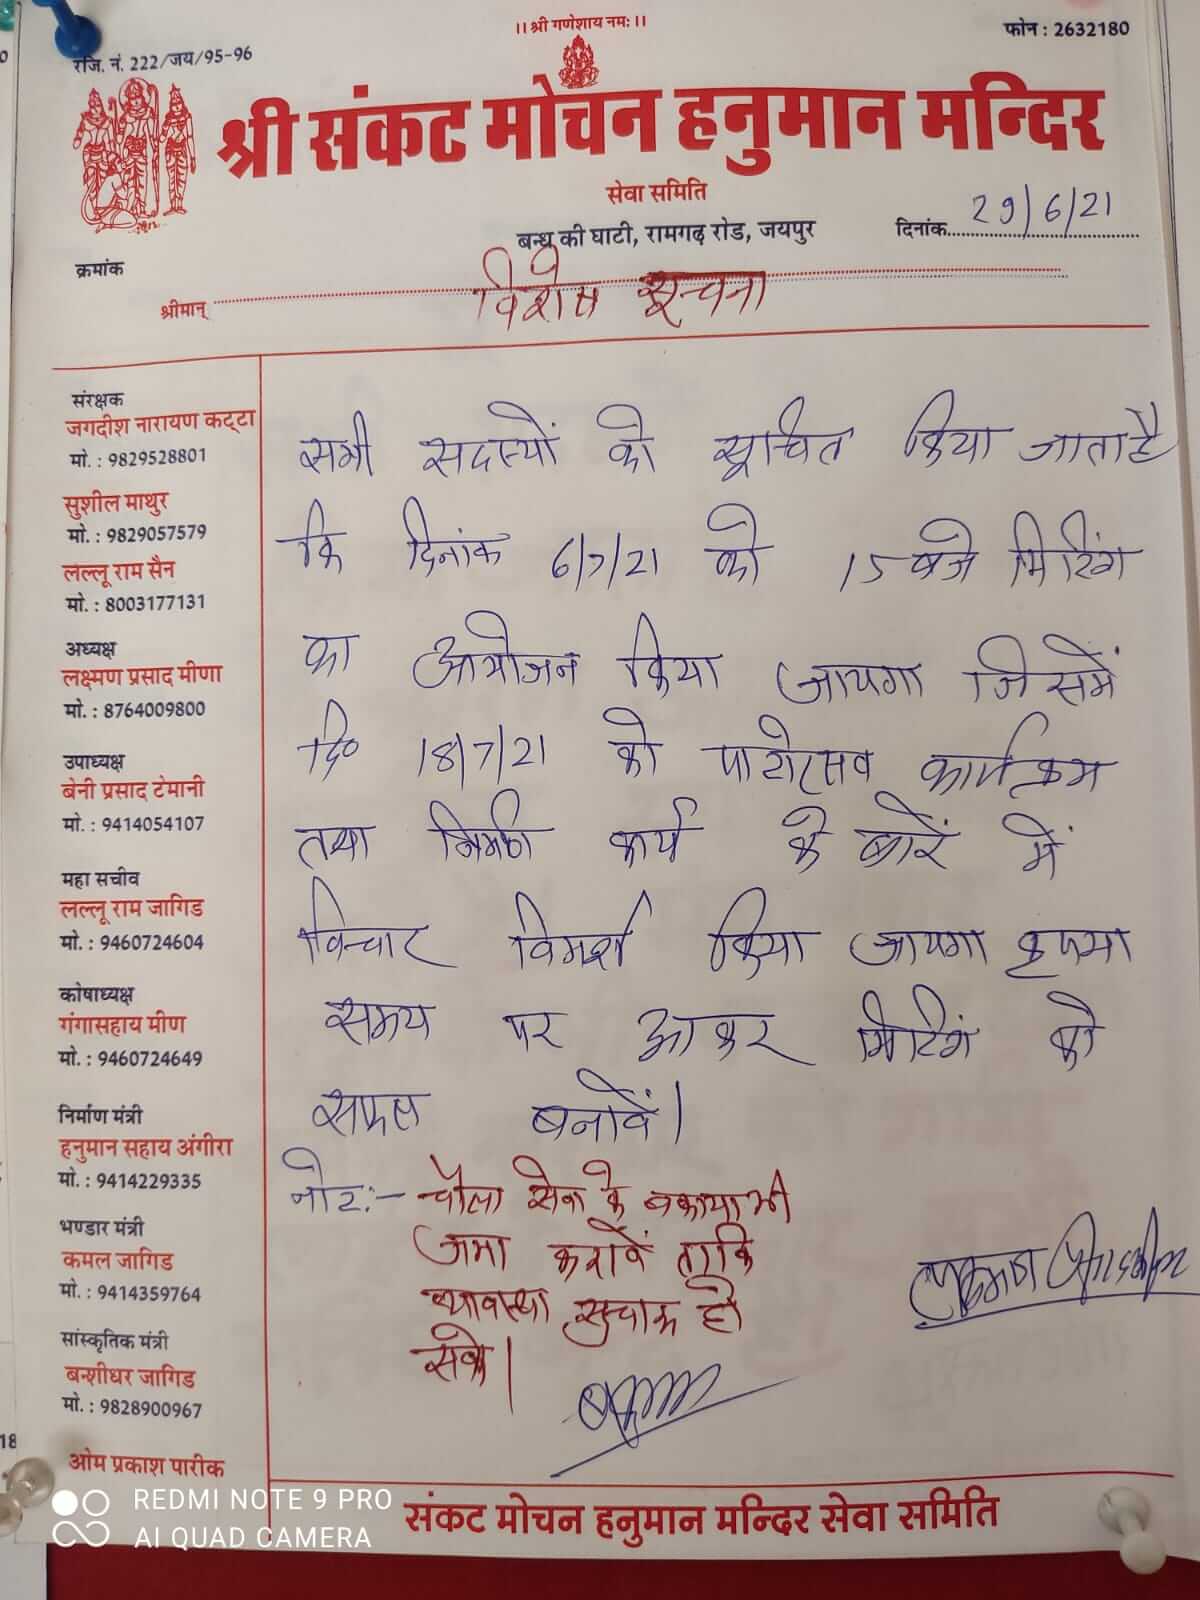 ।। श्री गणेशाय नमः ।।
फोन : 2632180
रजि. नं. 222/जय/95-96
श्री संकट मोचन हनुमान मन्दिर
सेवा समिति
बन्ध की घाटी, रामगढ़ रोड, जयपुर
दिनांक 29/6/21
क्रमांक
श्रीमान्
विशेष सूचना
संरक्षक
जगदीश नारायण कट्टा
मो. : 9829528801
सुशील माथुर
मो. : 9829057579
लल्लू राम सैन
मो. : 8003177131
अध्यक्ष
लक्ष्मण प्रसाद मीणा
मो. : 8764009800
उपाध्यक्ष
बेनी प्रसाद टेमानी
मो. : 9414054107
महा सचीव
लल्लू राम जागिड
मो. : 9460724604
कोषाध्यक्ष
गंगासहाय मीण
मो. : 9460724649
निर्माण मंत्री
हनुमान सहाय अंगीरा
मो. : 9414229335
भण्डार मंत्री
कमल जागिड
मो. : 9414359764
सांस्कृतिक मंत्री
बन्शीधर जागिड
मो. : 9828900967
ओम प्रकाश पारीक
सभी सदस्यों को सूचित किया जाता है
कि दिनांक 6/7/21 को 15 बजे मिटिंग
का आयोजन किया जायगा जिसमें
दि० 18/7/21 को पाटोत्सव कार्यक्रम
तथा निर्माण कार्य के बारें में
विचार विमर्श किया जायगा कृपया
समय पर आकर मिटिंग को
सफल बनावें।
नोट:- चौला सेवा के बकाया भी
जमा करावें ताकि
व्यावस्था सुचारू हो
सके।
संकट मोचन हनुमान मन्दिर सेवा समिति
REDMI NOTE 9 PRO
AI QUAD CAMERA